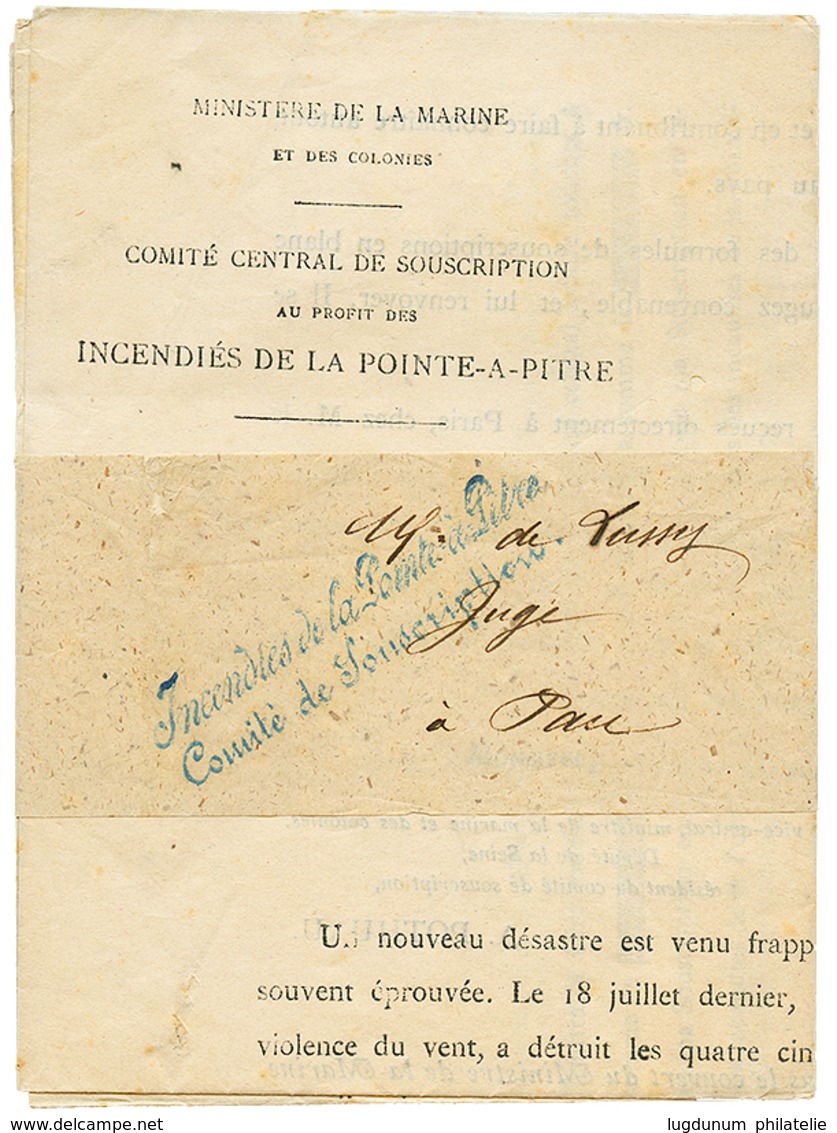 MINISTERE DE LA MARINE
ET DES COLONIES
COMITÉ CENTRAL DE SOUSCRIPTION
AU PROFIT DES
INCENDIÉS DE LA POINTE-A-PITRE
Incendiés de la Pointe-à-Pitre
Comité de Souscription.
de Lussy
Juge
à Pau
Un nouveau désastre est venu frapp
souvent éprouvée. Le 18 juillet dernier,
violence du vent, a détruit les quatre cin
delcampe.net
lugdunum philatelie